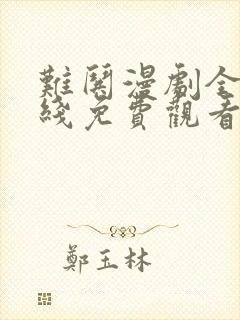 難閑漫劇全
綫免費觀看
鄭玉林